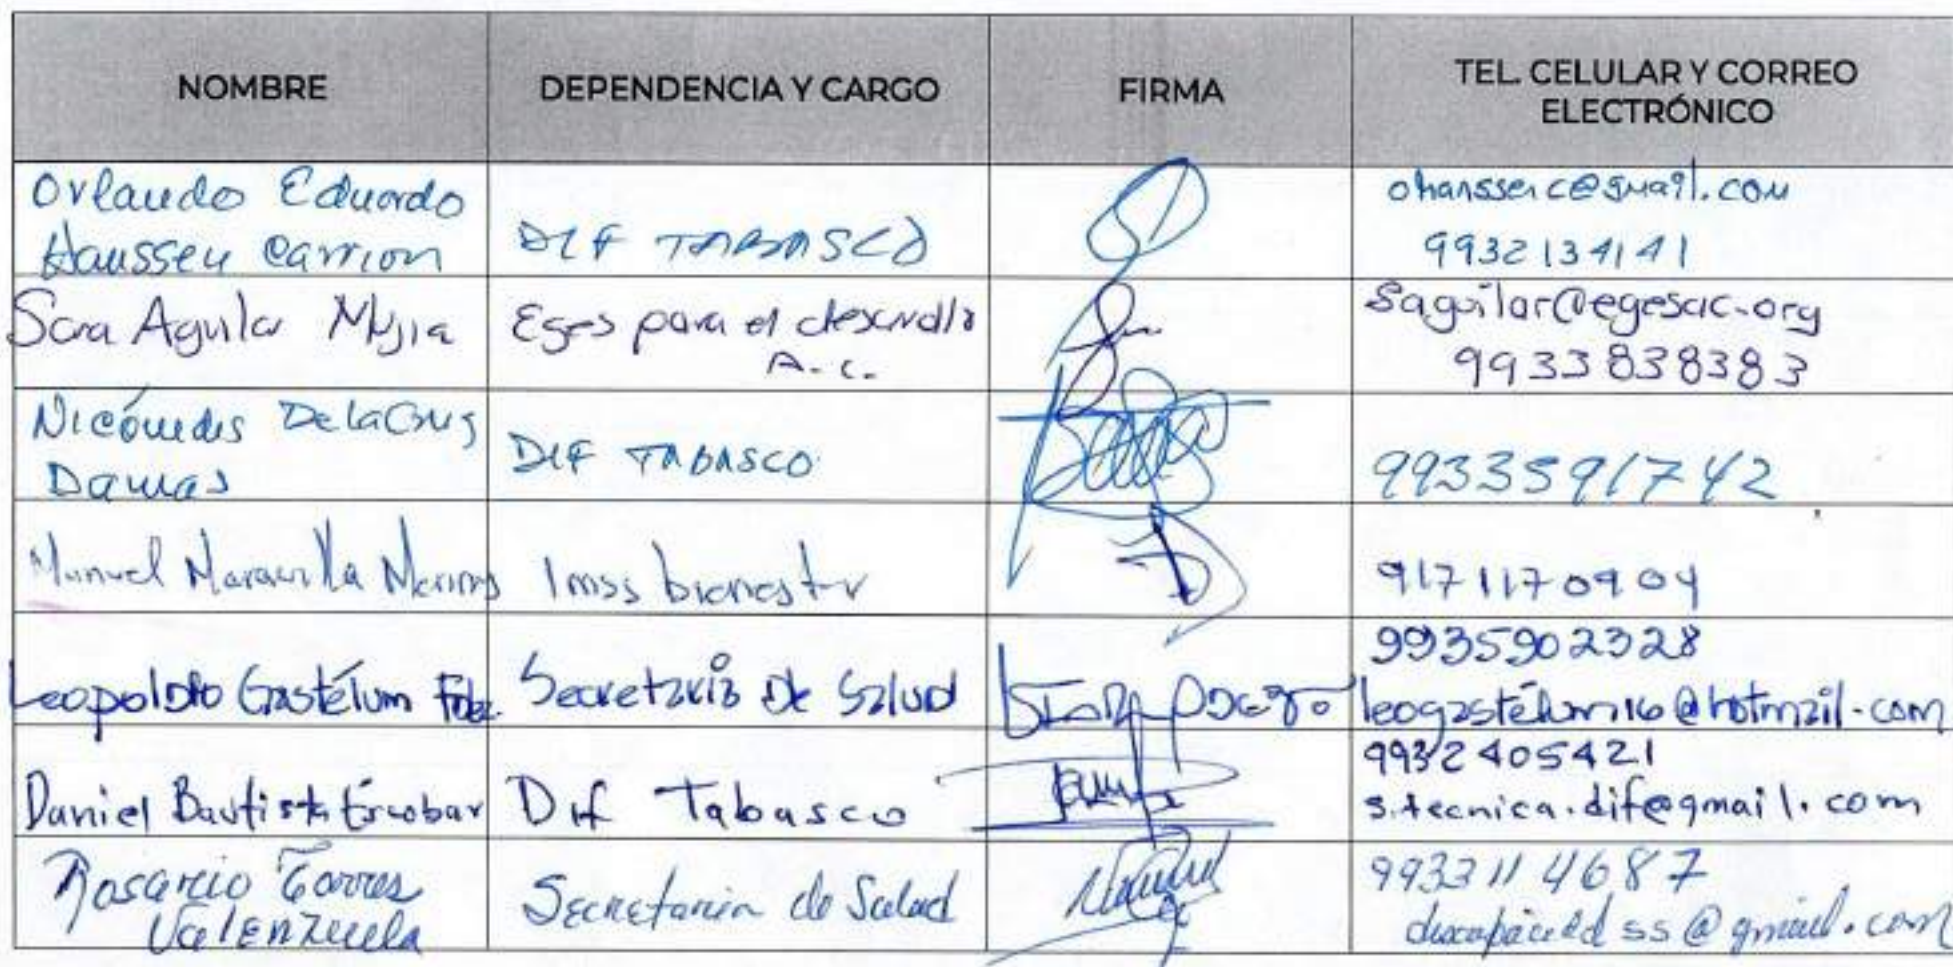 NOMBRE
DEPENDENCIA Y CARGO
FIRMA
TEL. CELULAR Y CORREO
ELECTRÓNICO
Orlando Eduardo
Haussen Carrion
DIF TABASCO
ohanssenc@gmail.com
9932134141
Sara Aguilar Mejia
Eges para el desarrollo
A.C.
saguilar@egesac.org
9933838383
Nicómedes De la Cruz
Damas
DIF TABASCO
9933591742
Manuel Maravilla
Imss bienestar
9171170904
Leopoldo Gastélum Fdez.
Secretaría De Salud
9935902328
leogastélum16@hotmail.com
Daniel Bautista Escobar
Dif Tabasco
9932405421
s.tecnica.dif@gmail.com
Rosario Torres
Valenzuela
Secretaria de Salud
9933114687
ss@gmail.com